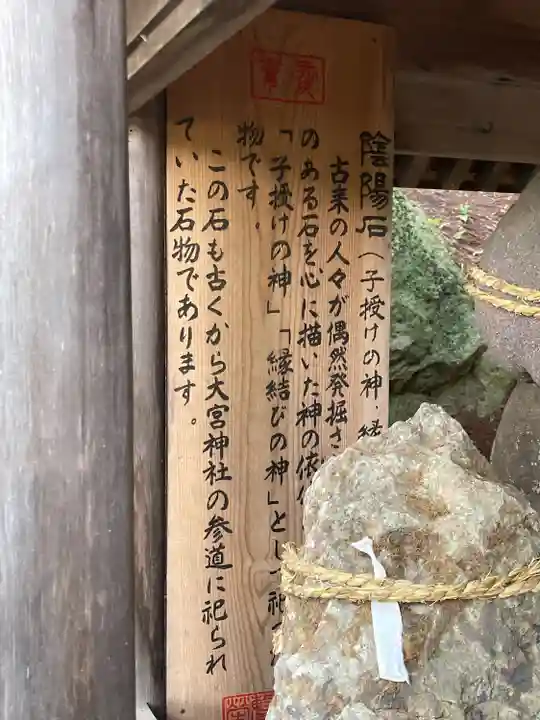 陰陽石(子授けの神・縁
古来の人々が偶然発掘さ
のある石を心に描いた神の依
「子授けの神」「縁結びの神」として祀
物です。
この石も古くから大宮神社の参道に祀られ
ていた石物であります。